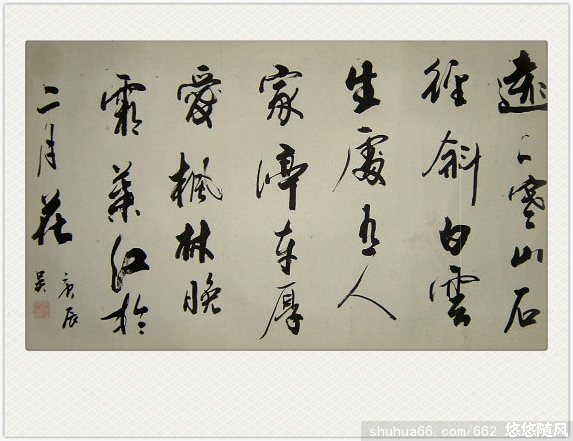 遠上寒山石
徑斜白雲
生處有人
家停車厚
愛楓林晚
霜葉紅於
二月花
庚辰
吴
shuhua66.com/662 悠悠随风